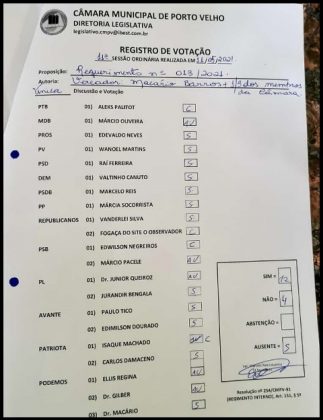 CÂMARA MUNICIPAL DE PORTO VELHO
DIRETORIA LEGISLATIVA
legislativo.cmpv@ibest.com.br
REGISTRO DE VOTAÇÃO
11ª SESSÃO ORDINÁRIA REALIZADA EM
Proposição: Requerimento nº 013/2021.
Autoria: Vereador Macário Barros + 1/3 dos membros
Única Discussão e Votação da Câmara
PTB 01) ALEKS PALITOT C
MDB 01) MÁRCIO OLIVEIRA
PROS 01) EDEVALDO NEVES S
PV 01) WANOEL MARTINS S
PSD 01) RAÍ FERREIRA S
DEM 01) VALTINHO CANUTO S
PSDB 01) MARCELO REIS S
PP 01) MÁRCIA SOCORRISTA S
REPUBLICANOS 01) VANDERLEI SILVA S
02) FOGAÇA DO SITE O OBSERVADOR C
PSB 01) EDWILSON NEGREIROS C
02) MÁRCIO PACELE
PL 01) Dr. JUNIOR QUEIROZ
02) JURANDIR BENGALA S
AVANTE 01) PAULO TICO S
02) EDIMILSON DOURADO S
PATRIOTA 01) ISAQUE MACHADO C
02) CARLOS DAMACENO S
PODEMOS 01) ELLIS REGINA
02) Dr. GILBER
03) Dr. MACÁRIO S
SIM = 12
NÃO = 4
ABSTENÇÃO =
AUSENTE = 5
Resolução nº 254/CMPV-91
(REGIMENTO INTERNO), Art. 151, § 5º